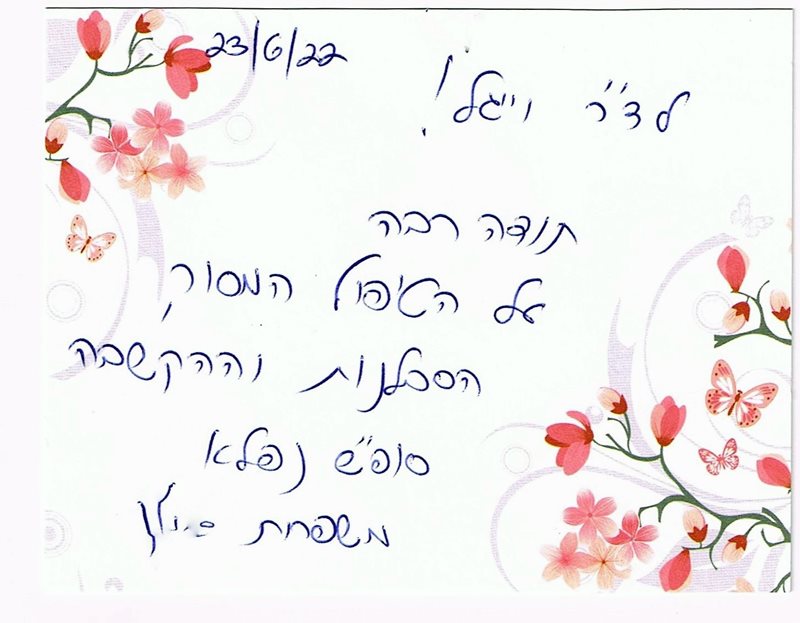 23/6/22
לד״ר וייגל!
תודה רבה
על הטיפול המסור,
הסבלנות וההקשבה
סופ״ש נפלא
משפחת